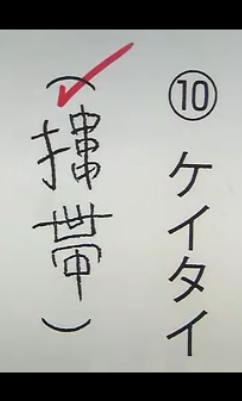 ⑩ ケイタイ
(帯)